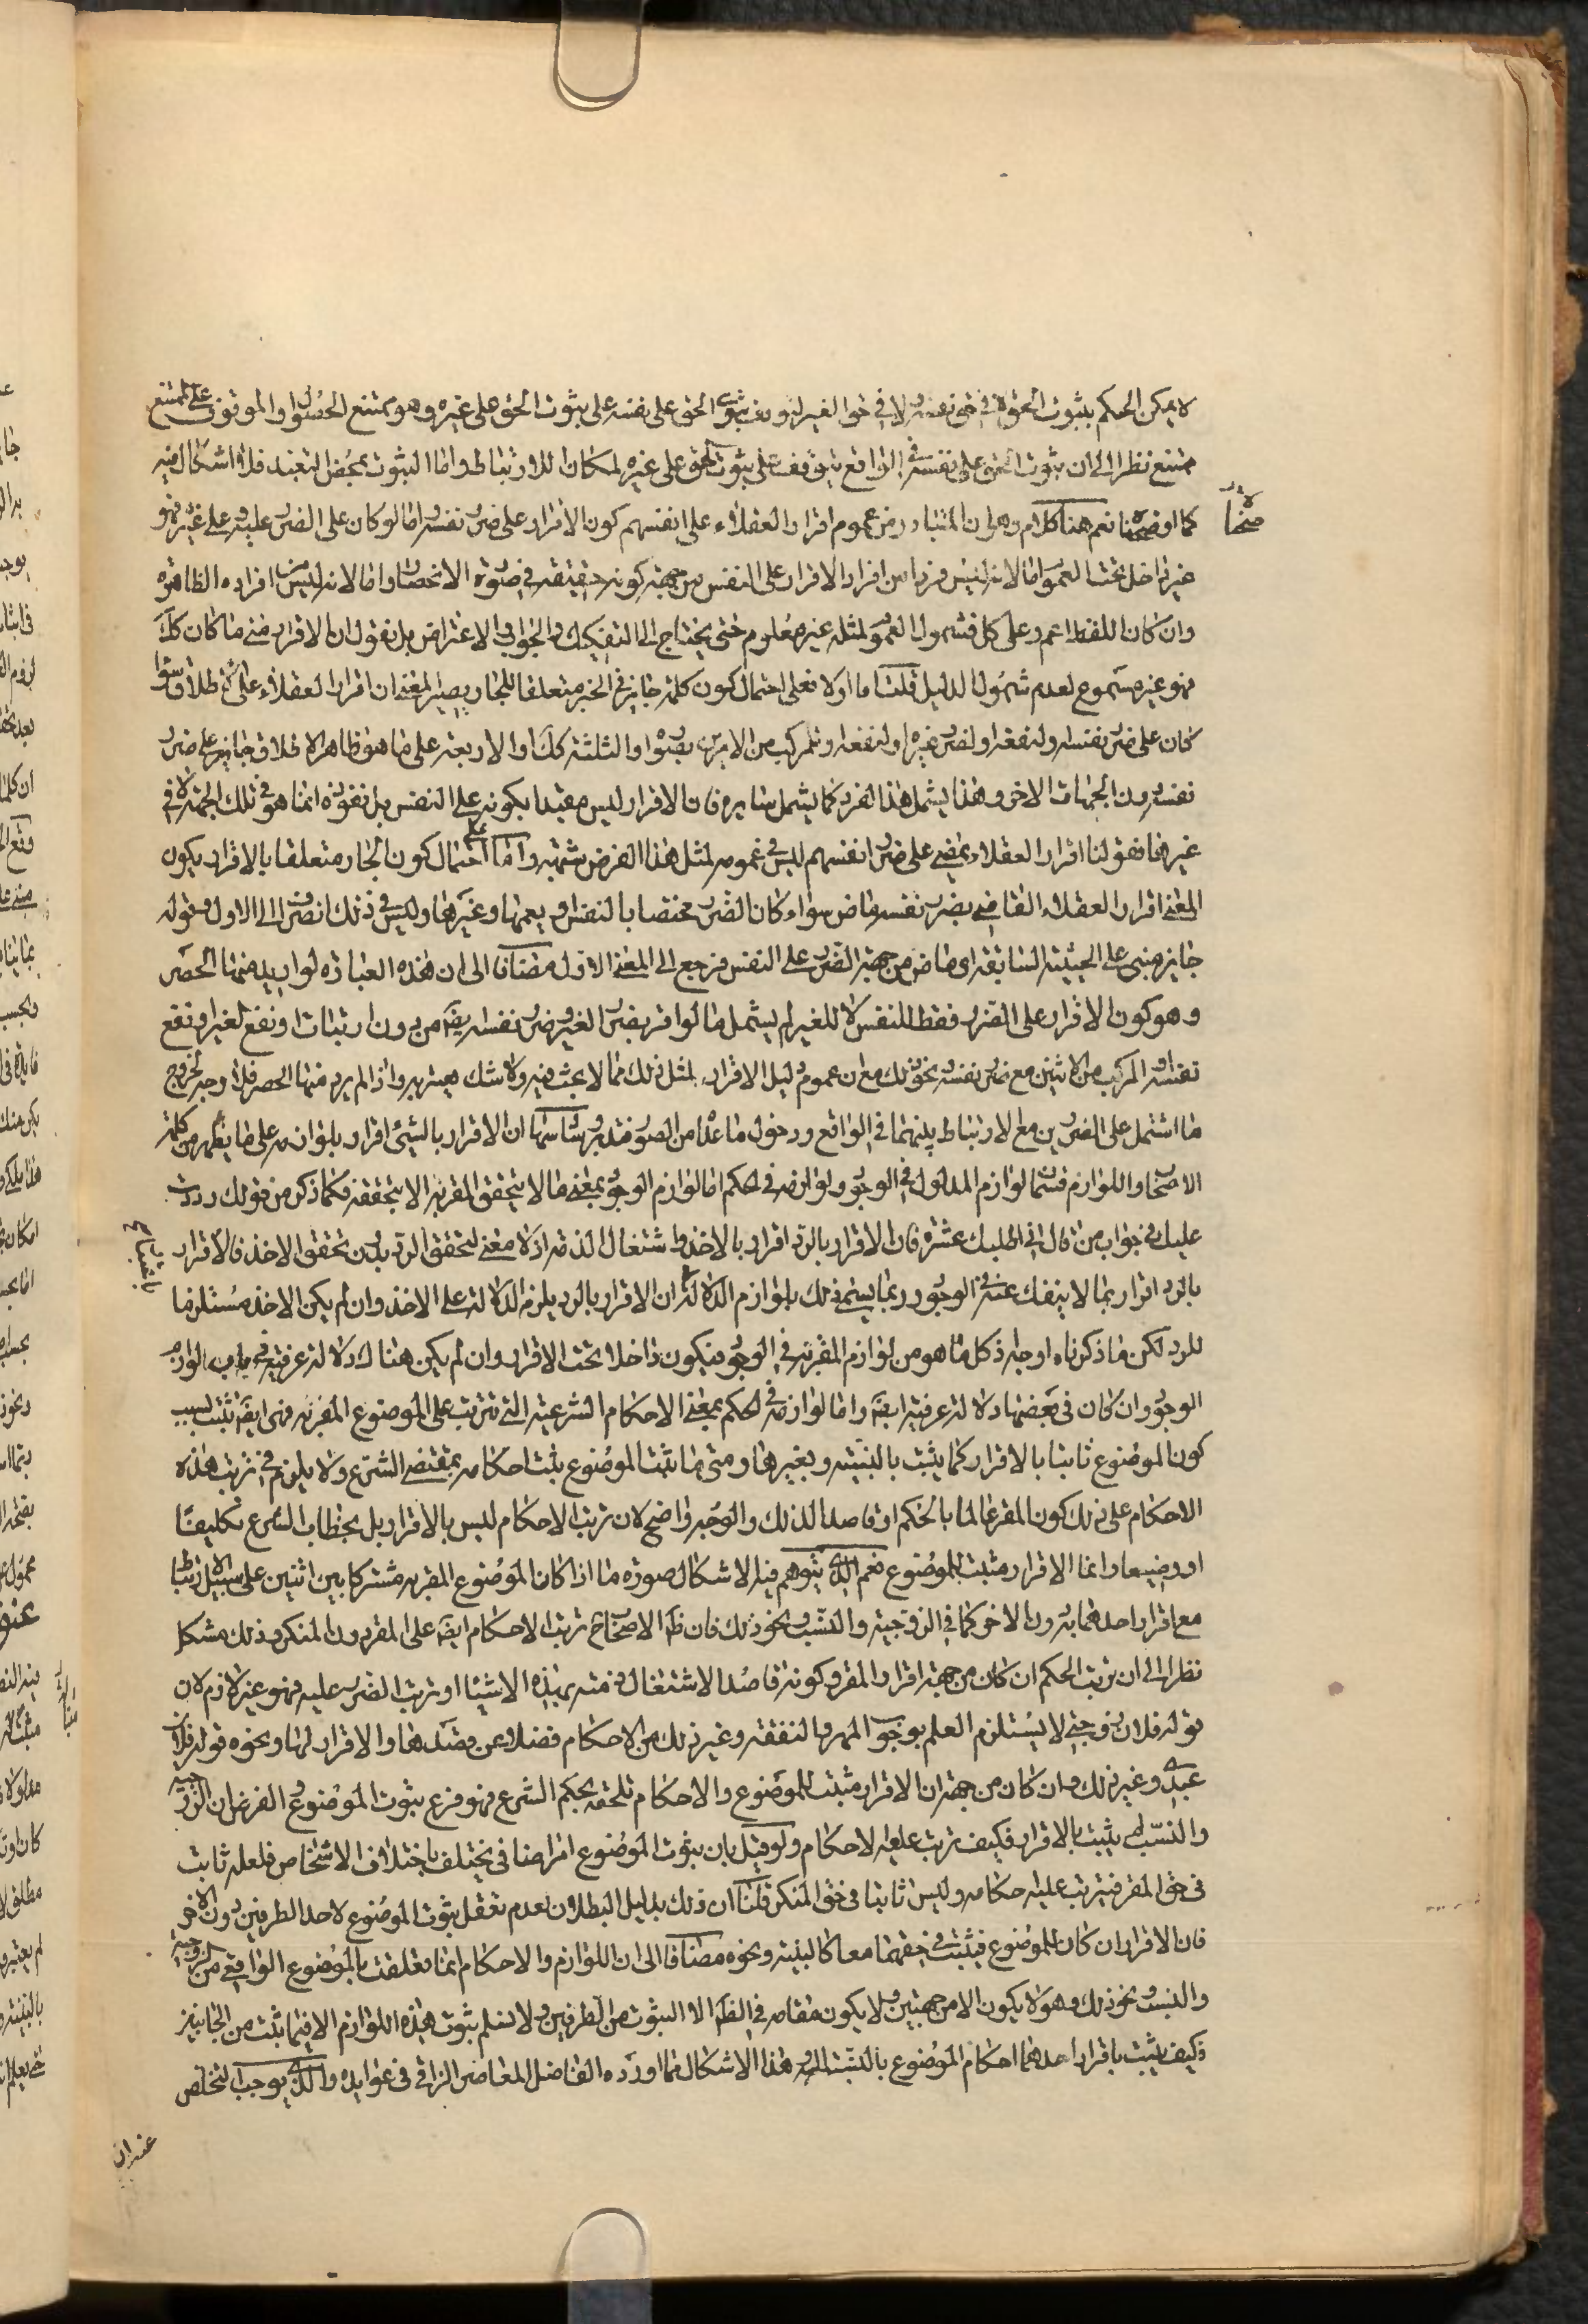 لا يمكن الحكم بثبوت الحق في حق نفسه لا في حق الغير لتوقف ثبوت الحق على نفسه على ثبوت الحق على غيره وهو ممتنع الحصول والموقوف على الممتنع
ممتنع نظرا الى ان ثبوت الحق على نفسه في الواقع يتوقف على ثبوت الحق على غيره لمكان الارتباط واما الثبوت بمحض التعبد فلا اشكال فيه
كما اوضحنا نعم هنا كلام وهو ان المتبادر من عموم اقرار العقلاء على انفسهم كون الاقرار على ضرر نفسه اما لو كان على الضرر عليه وعلى غيره فهو
غير داخل تحت العموم اما لانه ليس فردا من افراد الاقرار على النفس من جهة كونه حقيقة في صورة الانحصار واما لانه ليس من افراده الظاهرة
وان كان اللفظ اعم وعلى كل فشمول العموم لمثله غير معلوم حتى يحتاج الى التفكيك والجواب الاعتراض بل نقول ان الاقرار متى ما كان كك
فهو غير مسموع لعدم شمول الدليل قلت اما اولا فعلى احتمال كون كلمة جايز في الخبر متعلقا للجار يصير المعنى ان اقرار العقلاء على الاطلاق سواء
كان على ضرر نفسه او لنفعه او لضرر غيره او لنفعه او للمركب من الامرين بصوره او الثلثة كك او الاربعة على ما هو ظاهر الاطلاق جايز على ضرر
نفسه دون الجهات الاخر وهذا يشمل هذا الفرد كما يشمل سايره فان الاقرار ليس مقيدا بكونه على النفس بل نفوذه انما هو في تلك الجهة لا في
غيرها فقولنا اقرار العقلاء يمضي على ضرر انفسهم ليس في عمومه لمثل هذا الفرض شبهة واما على احتمال كون الجار متعلقا بالاقرار يكون
المعنى اقرار العقلاء القاضي بضرر نفسه ماض سواء كان الضرر مختصا بالنفس او يعمها وغيرها وليس في ذلك انصراف الى الاول وقوله
جايز مبني على الحيثية السابقة اي ماض من جهة الضرر على النفس فرجع الى المعنى الاول مضافا الى ان هذه العبارة لو اريد منها الحصر
وهو كون الاقرار على الضرر فقط للنفس لا للغير لم يشمل ما لو اقر بضرر الغير وضرر نفسه ايضا من دون ارتباط او نفع لغيره او نفع
نفسه او المركب من الاثنين مع ضرر نفسه ونحو ذلك مع ان عموم دليل الاقرار لمثل ذلك مما لا بحث فيه ولا شك يعتريه واذا لم يرد منها الحصر فلا وجه لخروج
ما اشتمل على الضررين مع الارتباط بينهما في الواقع ودخول ما عدا من الصور فتدبر وسادسها ان الاقرار بالشيء اقرار بلوازمه على ما يظهر من كلمة
الاصحاب واللوازم قسمان لوازم المدلول في الوجود ولوازمه في الحكم اما لوازم الوجود بمعنى ما لا يتحقق المقر به الا بتحققه فكما ذكر من قولك رددت
عليك في جواب من قال لي عليك عشرة فان الاقرار بالرد اقرار بالاخذ واشتغال الذمة اذ لا معنى لتحقق الرد بدون تحقق الاخذ فالاقرار
بالرد اقرار بما لا ينفك عنه في الوجود وربما يسمى ذلك بلوازم الدلالة لان الاقرار بالرد يلزمه الدلالة على الاخذ وان لم يكن الاخذ مستلزما
للرد لكن ما ذكرناه اوجه اذ كل ما هو من لوازم المقر به في الوجود فيكون داخلا تحت الاقرار وان لم يكن هناك دلالة عرفية في باب لوازم
الوجود وان كان في بعضها دلالة عرفية ايضا واما لوازمه في الحكم بمعنى الاحكام الشرعية التي تترتب على الموضوع المقر به فهي ايضا تثبت بسبب
كون الموضوع ثابتا بالاقرار كما يثبت بالبينة وبغيرها ومتى ما ثبت الموضوع يثبت احكامه بمقتضى الشرع ولا يلزم في ترتب هذه
الاحكام على ذلك كون المقر عالما بالحكم او قاصدا لذلك والوجه واضح لان ترتب الاحكام ليس بالاقرار بل بخطاب الشرع تكليفا
او وضعا وانما الاقرار مثبت للموضوع نعم الذي يتوهم فيه الاشكال صورة ما اذا كان الموضوع المقر به مشتركا بين اثنين على سبيل الارتباط
مع اقرار احدهما به دون الاخر كما في الزوجية والنسب ونحو ذلك فان ظ الاصحاب ترتب الاحكام ايضا على المقر دون المنكر وذلك مشكل
نظرا الى ان ترتب الحكم ان كان من جهة اقرار المقر وكونه قاصدا لاشتغال ذمته بهذه الاشياء او ترتب الضرر عليه فهو غير لازم لان
قوله فلان زوجتي لا يستلزم العلم بوجوب المهر والنفقة وغير ذلك من الاحكام فضلا عن قصدها والاقرار لها ونحوه قوله فلان
عبدي وغير ذلك وان كان من جهة ان الاقرار مثبت للموضوع والاحكام تلحقه بحكم الشرع فهو فرع ثبوت الموضوع والفرض ان الزوجية
والنسب لم يثبت بالاقرار فكيف ترتب عليه الاحكام ولو قيل بان ثبوت الموضوع امر اضافي يختلف باختلاف الاشخاص فلعله ثابت
في حق المقر فيترتب عليه احكامه وليس ثابتا في حق المنكر قلنا ان ذلك بديهي البطلان لعدم تعقل ثبوت الموضوع لاحد الطرفين دون الاخر
فان الاقرار ان كان للموضوع فيثبت في حقهما معا كالبينة ونحوه مضافا الى ان اللوازم والاحكام انما تعلقت بالموضوع الواقعي من الزوجية
والنسب ونحو ذلك وهو لا يكون الا من جهتين ولا يكون مقامه في الظ الا الثبوت من الطرفين ولا نسلم ثبوت هذه اللوازم الا فيما يثبت من الجانبين
فكيف يثبت باقرار احدهما احكام الموضوع بالنسبة اليه هذا الاشكال مما اورده الفاضل المعاصر النراقي في عوايده والذي يوجب التخلص
عنه ان